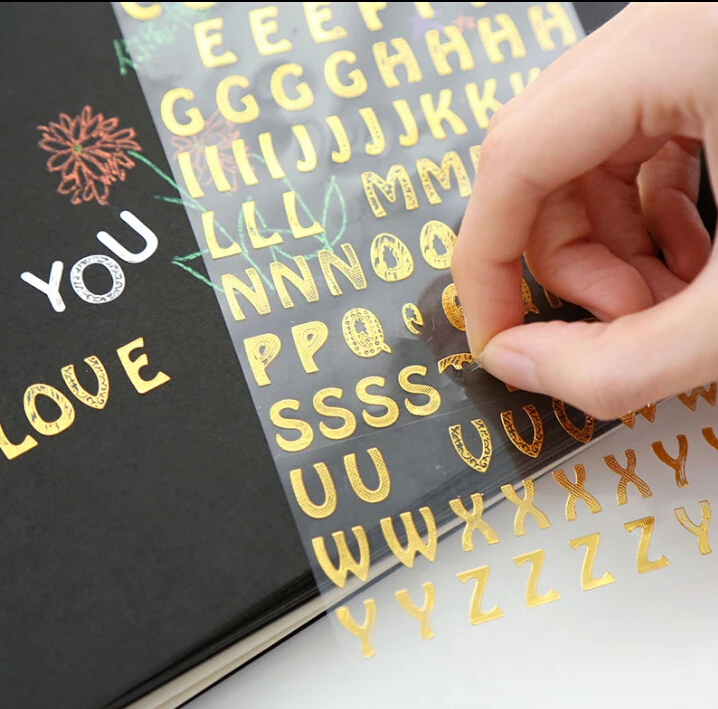 YOU
LOVE
E E E F
G G G G H H H H
I I I J J J K K K
L L L M M M
N N N O O
P P Q ,
S S S S
U U V V V W W
W W X X X X Y Y
Y Y Z Z Z Z Y